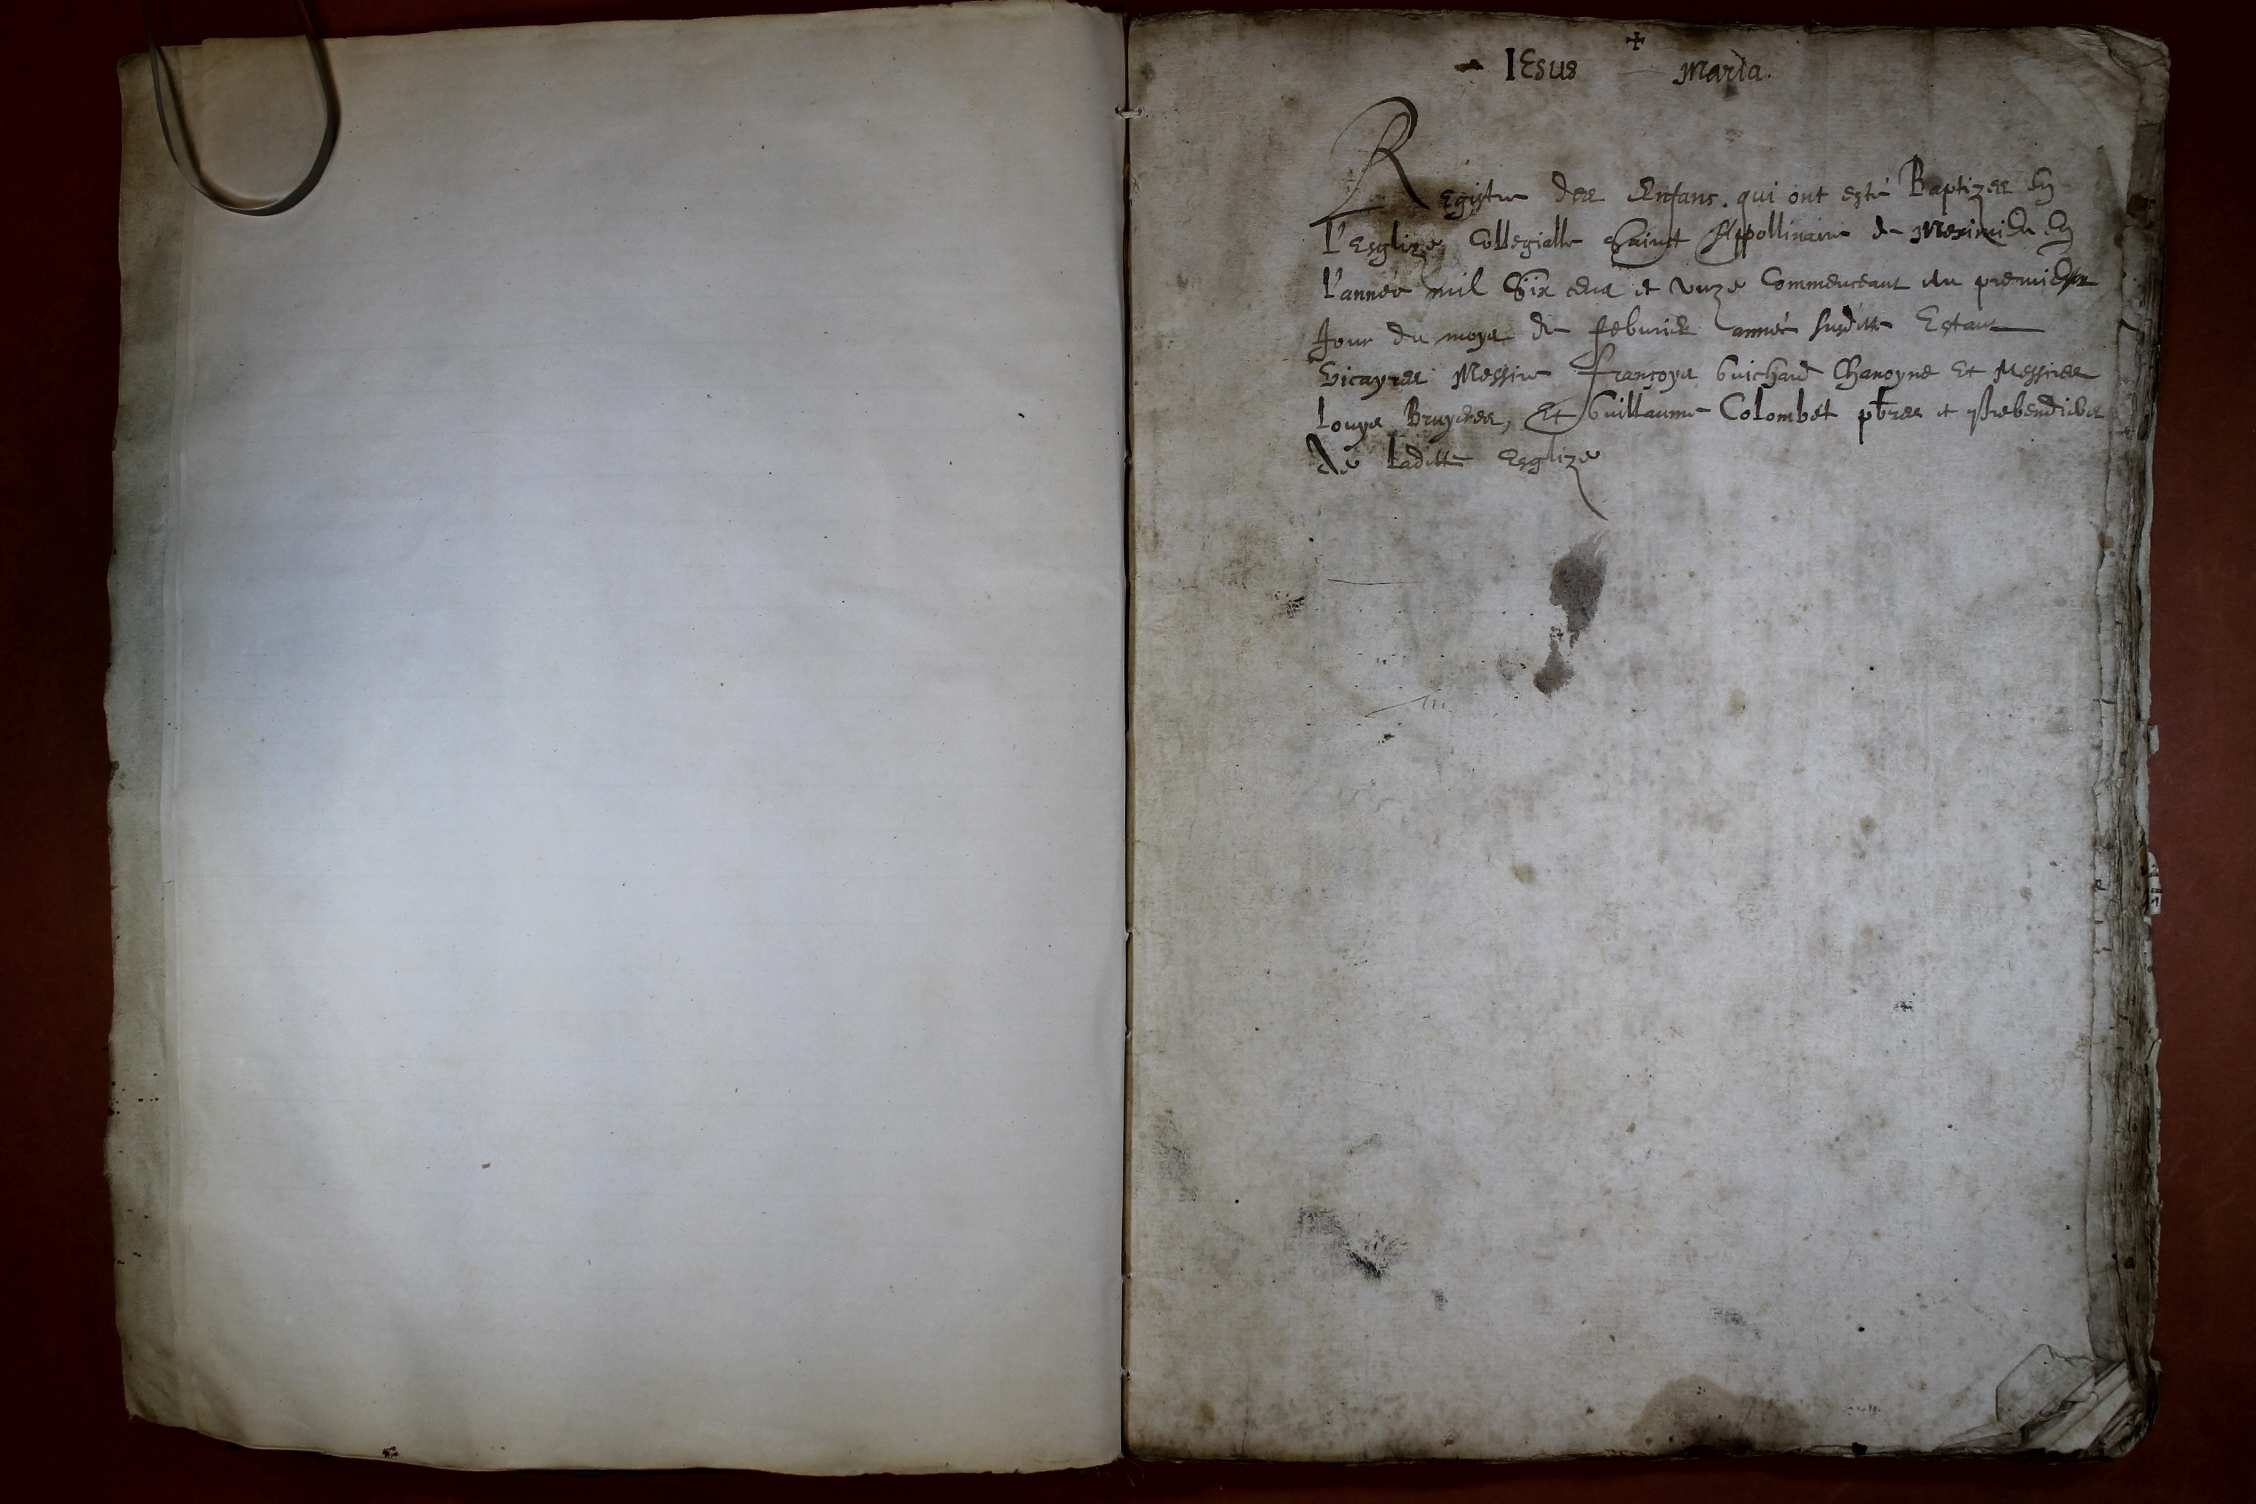 +
IEsus Maria.
Registre des Enfans. qui ont esté Baptizes En
L'Esglize Collegialle Sainct Appollinaire de Meximieu En
L'année mil Six cens et unze Commenceant du premier
Jour du moys de feburier année susditte Estant
Vicayres Messire Françoys Guichard Chanoyne Et Messires
Louys Bruyeres, Et Guillaume Colombet pbres et prebendiers
De laditte Esglize